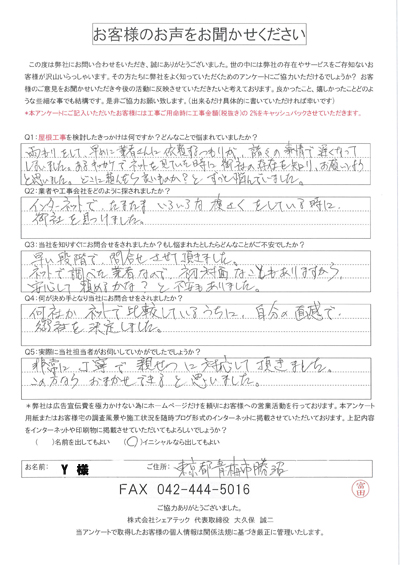 お客様のお声をお聞かせください
この度は弊社にお問い合わせをいただき、誠にありがとうございました。世の中には弊社の存在やサービスをご存知ないお
客様が沢山いらっしゃいます。その方たちに弊社をよく知っていただくためのアンケートにご協力いただけるでしょうか? お客
様のご意見をお聞かせいただき今後の活動に反映させていただきたいと考えております。良かったこと、嬉しかったことどのよ
うな些細な事でも結構です。是非ご協力お願い致します。(出来るだけ具体的に書いていただければ幸いです)
*本アンケートにご記入いただいたお客様には工事ご用命時に工事金額(税抜き)の2%をキャッシュバックさせていただきます。
Q1:屋根工事を検討したきっかけは何ですか?どんなことで悩まれていましたか?
雨もりをして、早めに業者さんに依頼するつもりが、諸々の事情で遅くなって
しまいました。あるわけでネットを見ていた時に御社の存在を知り、お願いしよう
と思いました。どこに頼んだらよいものか?とずっと悩んでいました。
Q2:業者や工事会社をどのように探されましたか?
インターネットで、たまたまいろいろな検索をしている時に、
御社を見つけました。
Q3:当社を知りすぐにお問合せをされましたか?もし悩まれたとしたらどんなことがご不安でしたか?
早い段階で、問合せさせて頂きました。
ネットで調べた業者なので、初対面なこともありますから、
安心して頼めるかな?と不安もありました。
Q4:何が決め手となり当社にお問合せをされましたか?
何社かネットで比較しているうちに、自分の直感で、
御社を決定しました。
Q5:実際に当社担当者がお伺いしていかがでしたでしょうか?
非常に丁寧で親切に対応して頂きました。
この方ならおまかせできると思いました。
*弊社は広告宣伝費を極力かけない為にホームページだけを頼りにお客様への営業活動を行っております。本アンケート
用紙またはお客様宅の調査風景や施工状況をスタッフ随時ブログ形式でのインターネットに掲載させていただいております。上記内容
をインターネットや印刷物に掲載させていただいてもよろしいでしょうか?
( )名前を出してもよい (○)イニシャルなら出してもよい
お名前: Y 様 ご住所: 東京都青梅市勝沼
FAX 042-444-5016
富田
ご協力ありがとうございました。
株式会社シェアテック 代表取締役 大久保 誠二
当アンケートで取得したお客様の個人情報は関係法規に基づき厳正に管理いたします。